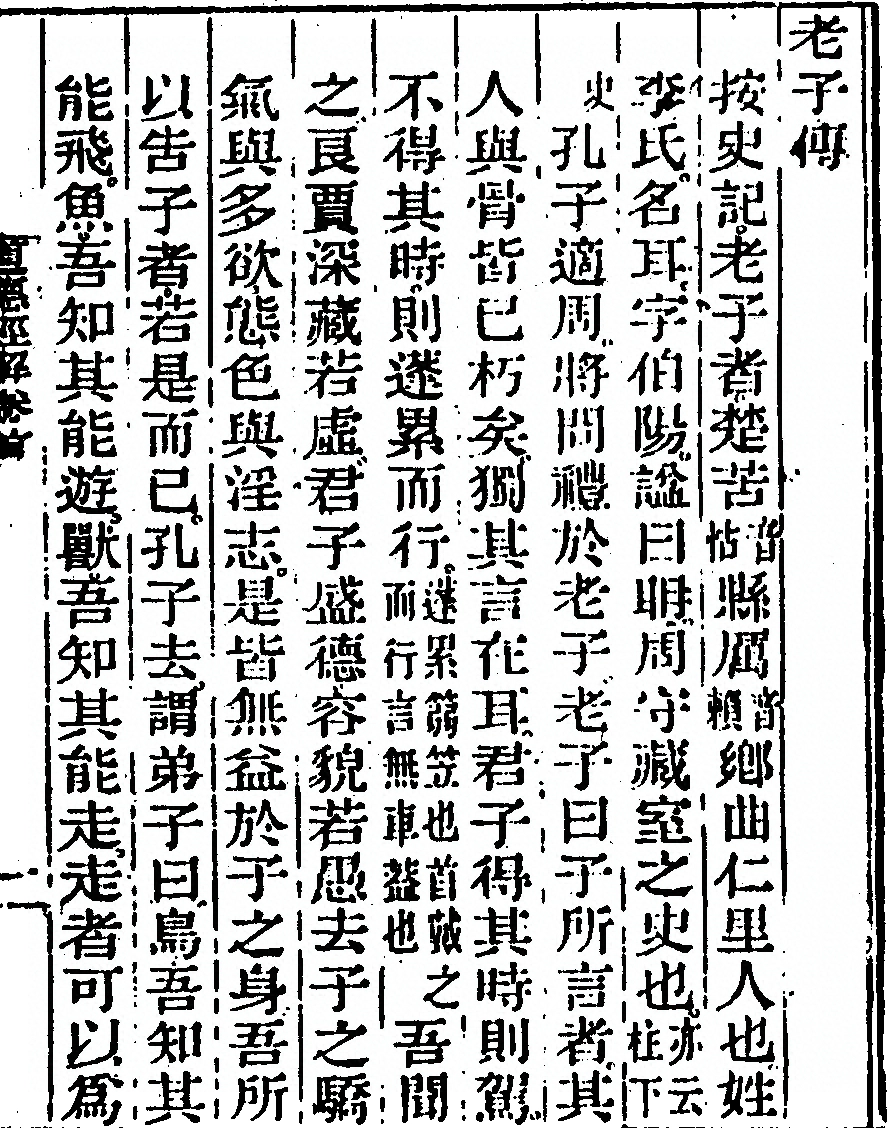 老子傳
按史記老子者楚苦音怙縣厲音賴鄉曲仁里人也姓
李氏名耳字伯陽諡曰聃周守藏室之史也亦云柱下
史孔子適周將問禮於老子老子曰子所言者其
人與骨皆已朽矣獨其言在耳君子得其時則駕
不得其時則蓬累而行蓬累篛笠也首戴之而行言無車蓋也吾聞
之良賈深藏若虛君子盛德容貌若愚去子之驕
氣與多欲態色與淫志是皆無益於子之身吾所
以告子者若是而已孔子去謂弟子曰鳥吾知其
能飛魚吾知其能遊獸吾知其能走走者可以爲
道德經解卷首
一